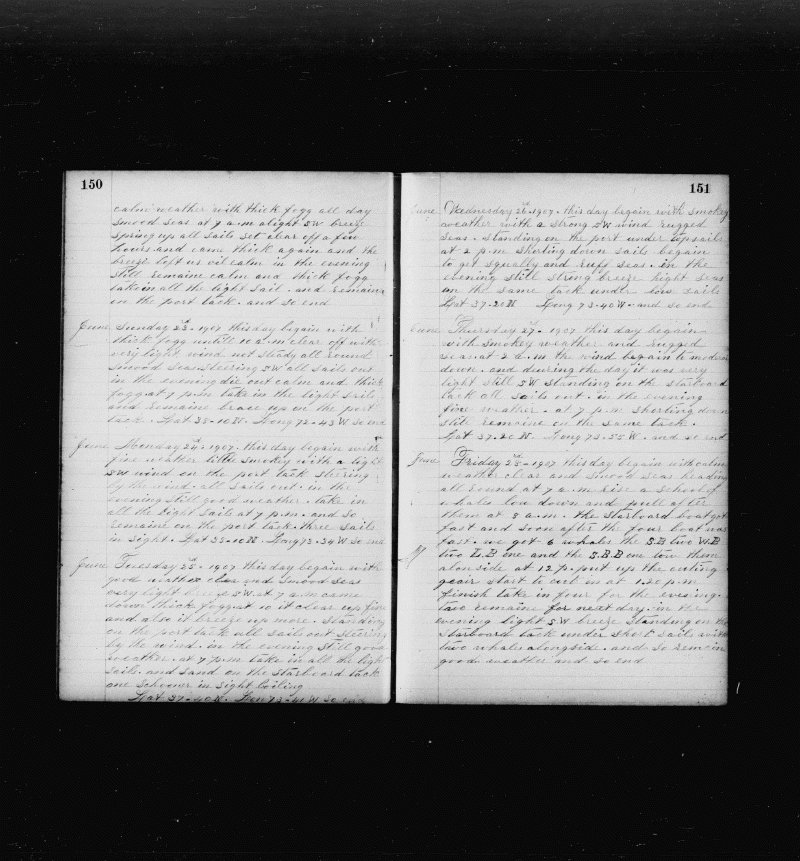 150
calm weather with thick fogg all day
smood seas at 7 a.m alight SW breeze
spring up all sails set clear off a few
hours and came thick again and the
breeze left us oil calm in the evening
still remaine calm and thick fogg
take in all the light sail. and remaine
on the port tack. and so end
June Sunday 23. 1907 this day begain with
thick fogg untill 10 a.m clear off with
very light wind not steady all round
smood seas. steering SW all sails out
in the evening die out calm and thick
fogg. at 7 p.m take in the light sails
and remaine brace up on the port
tack. Lat 38-10N. Long 72-43W so end
June Monday 24. 1907. this day begain with
fine weather little smokey with a light
SW wind on the port tack steering
by the wind. all sails out. in the
evening still good weather. take in
all the light sails at 7 p.m. and so
remaine on the port tack. three sails
in sight. Lat 38-10N. Long 73-34W so end
June Tuesday 25. 1907 this day begain with
good weather clear and smood seas
very light breeze SW. at 7 a.m came
down thick fogg. at 10 it clear up fine
and also it breeze up more. standing
on the port tack all sails out steering
by the wind. in the evening still good
weather. at 7 p.m. take in all the light
sails. and sand on the starboard tack
one schooner in sight boiling
Lat 37-40N. Lon 73-41W so end
151
June Wednesday 26. 1907. this day begain with smokey
weather with a strong SW wind rugged
seas. standing on the port under topsails
at 2 p.m shorting down sails begain
to get squally and ruff seas. in the
evening still strong breeze right seas
on the same tack under low sails
Lat 37-20N Long 73-40W. and so end
June Thursday 27. 1907 this day begain
with smokey weather and rugged
seas. at 2 a.m the wind begain to moderat
down. and during the day it was very
light still SW standing on the starboard
tack all sails out. in the evening
fine weather. at 7 p.m shorting down
still remaine on the same tack.
Lat 37-20N. Long 73-55W. and so end
June Friday 28-1907 this day begain with calm
weather clear and smood seas heading
all round at 7 a.m rise a school of
whales low down and pull after
them at 8 a.m. the starboard boat got
fast and soon after the four boat was
fast. we get 6 whales the S.B two W.B
two L.B one and the S.B.B one tow them
alonside at 12 p. put up the cuting
geair start to cut in at 1.20 p.m
finish take in four for the evening.
two remaine for next day. in the
evening light SW breeze standing on the
starboard tack under short sails with
two whales alongside. and so remain
good weather and so end